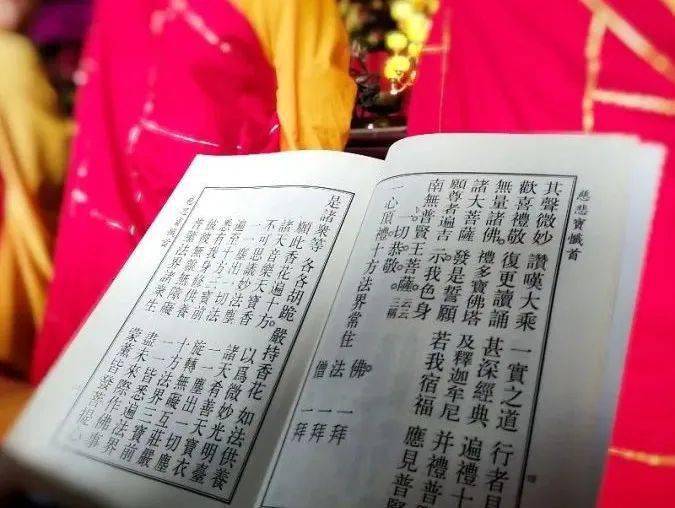 慈悲寶懺首
其聲微妙 讚嘆大乘 一實之道 行者見
歡喜禮敬 復更讀誦 甚深經典 遍禮十
無量諸佛。 禮多寶佛塔 及釋迦牟尼 并禮普
諸大菩薩 發是誓願 若我宿福 應見普賢
願尊者遍吉 示我色身
南無普賢王菩薩。三稱云云
一切恭敬。
一心頂禮十方法界常住 佛。 一拜
法 一拜
僧 一拜
是諸衆等 各各胡跪 嚴持香花 如法供養
願此香花遍十方。 以爲微妙光明臺
諸天音樂天寶香 諸天肴善天寶衣
不可思議妙法塵 一一塵出一切塵
一一塵出一切法 旋轉無礙互莊嚴
遍至十方三寶前 十方法界三寶前
悉有我身修供養 一一皆悉遍法界
彼彼無雜無障礙 盡未來際作佛事
普熏法界諸衆生 蒙熏皆發菩提心
慈悲寶懺首